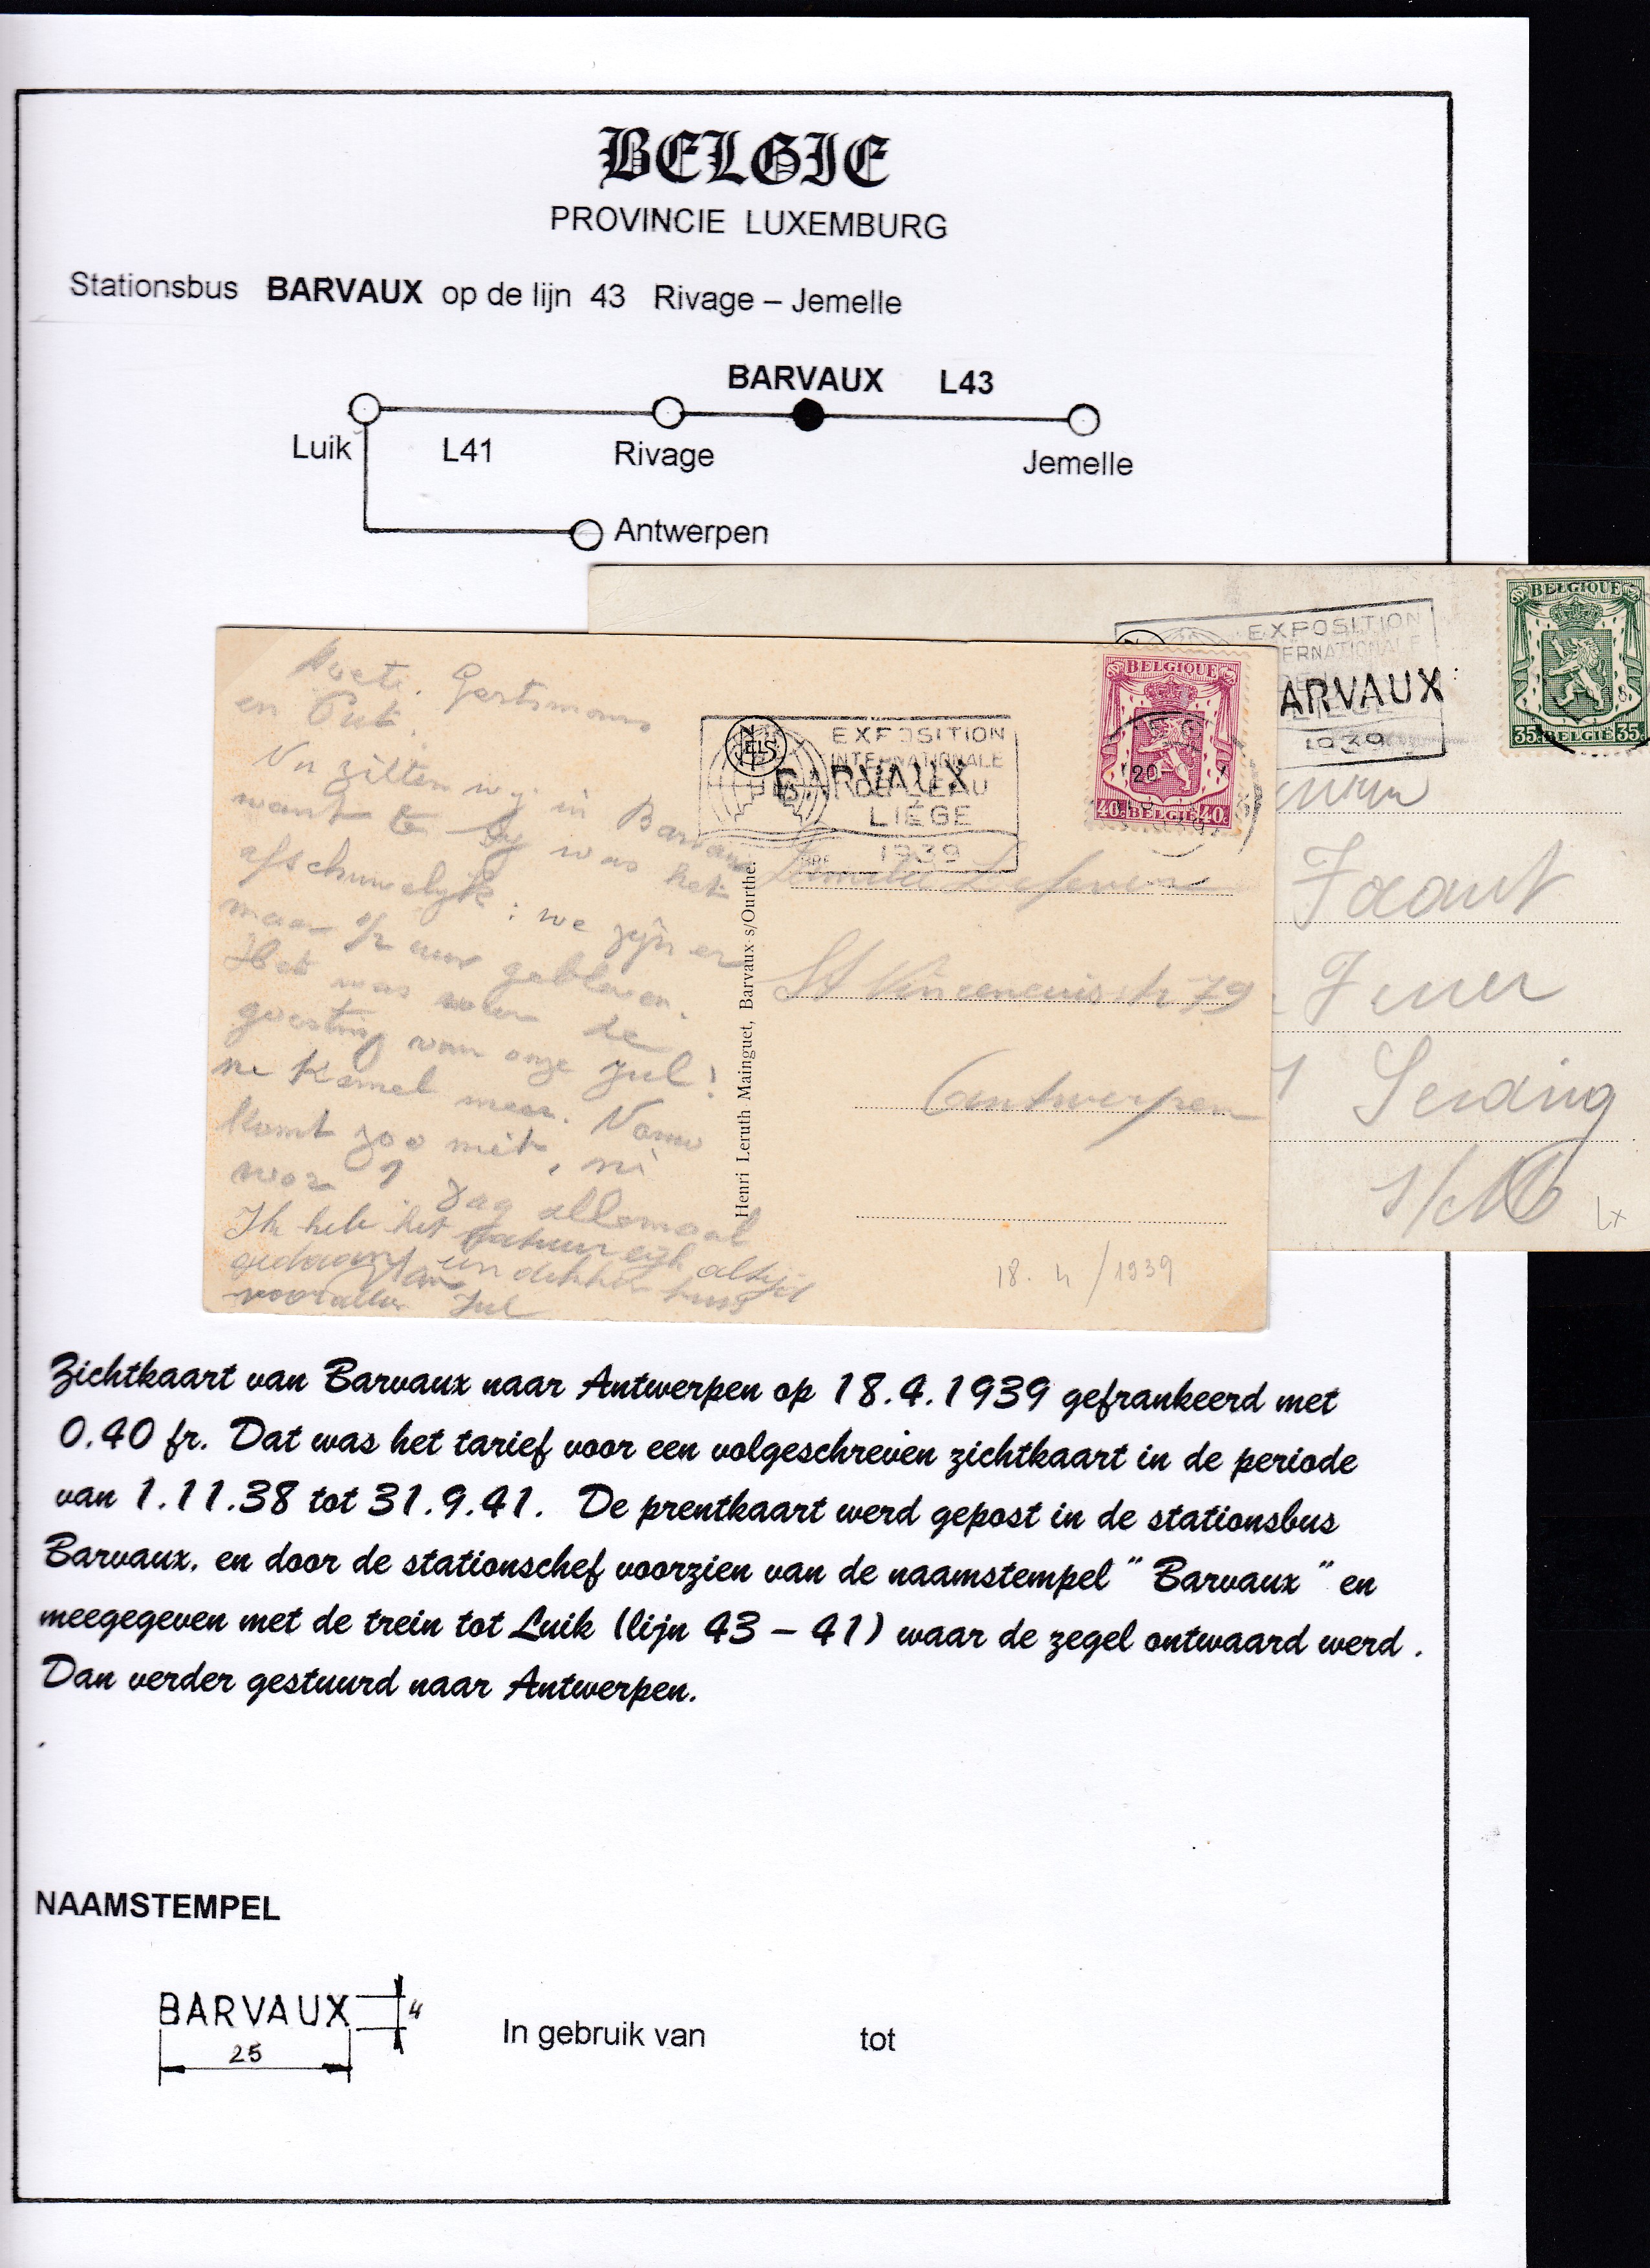 BELGIE
PROVINCIE LUXEMBURG
Stationsbus BARVAUX op de lijn 43 Rivage – Jemelle
BARVAUX L43
Luik L41 Rivage Jemelle
Antwerpen
EXPOSITION
ARVAUX
1939
BELGIQUE
35 BELGIE 35
Facant
Seraing
s/M
Lx
en
Nu zitten wij in Barvaux
want te Spy was het
afschuwelijk: we zijn er
maar 1/2 uur gebleven.
Het was weer de
goesting van onze Jul!
ne kemel meer. Nonu
komt zoo niet, ni
wor? Dag allemaal
Ik heb het
Jul
NELS
EXPOSITION
INTERNATIONALE
DE L'EAU
LIÉGE
1939
BARVAUX
BELGIQUE
40 BELGIE 40
20
Henri Leruth Mainguet, Barvaux s/Ourthe.
Lefevere
St Vincentiusstr 79
Antwerpen
18.4/1939
Zichtkaart van Barvaux naar Antwerpen op 18.4.1939 gefrankeerd met
0.40 fr. Dat was het tarief voor een volgeschreven zichtkaart in de periode
van 1.11.38 tot 31.9.41. De prentkaart werd gepost in de stationsbus
Barvaux. en door de stationschef voorzien van de naamstempel " Barvaux " en
meegegeven met de trein tot Luik (lijn 43 – 41) waar de zegel ontwaard werd .
Dan verder gestuurd naar Antwerpen.
NAAMSTEMPEL
BARVAUX 4
25
In gebruik van tot